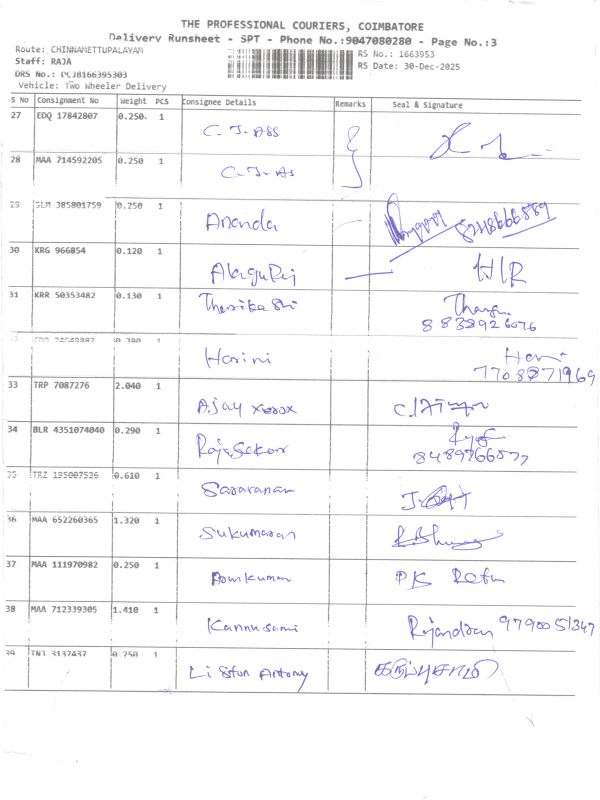 THE PROFESSIONAL COURIERS, COIMBATORE
Delivery Runsheet - SPT - Phone No.:9047080280 - Page No.:3
Route: CHINNAMETTUPALAYAM
RS No.: 1663953
Staff: RAJA
RS Date: 30-Dec-2025
DRS No.: PCJB166395303
Vehicle: Two Wheeler Delivery
S No Consignment No Weight PCS Consignee Details Remarks Seal & Signature
27 EDQ 17842807 0.250 1 C.J. Ass
28 MAA 714592205 0.250 1 C.J. As
29 SLM 385801759 0.250 1 Ananda
30 KRG 966854 0.120 1 AlaguRaj H/R
31 KRR 50353482 0.130 1
8838926076
1 Harini Hari
7708271969
33 TRP 7087276 2.040 1 Ajay xerox
34 BLR 4351074040 0.290 1 RajaSekar
8489766577
35 TRZ 195007526 0.610 1 Saravanan
36 MAA 652260365 1.320 1 Sukumaran
37 MAA 111970982 0.250 1 Ramkumar
38 MAA 712339305 1.410 1 Kannusami 9790051347
39 1 Liston Antony கருப்புசாமி